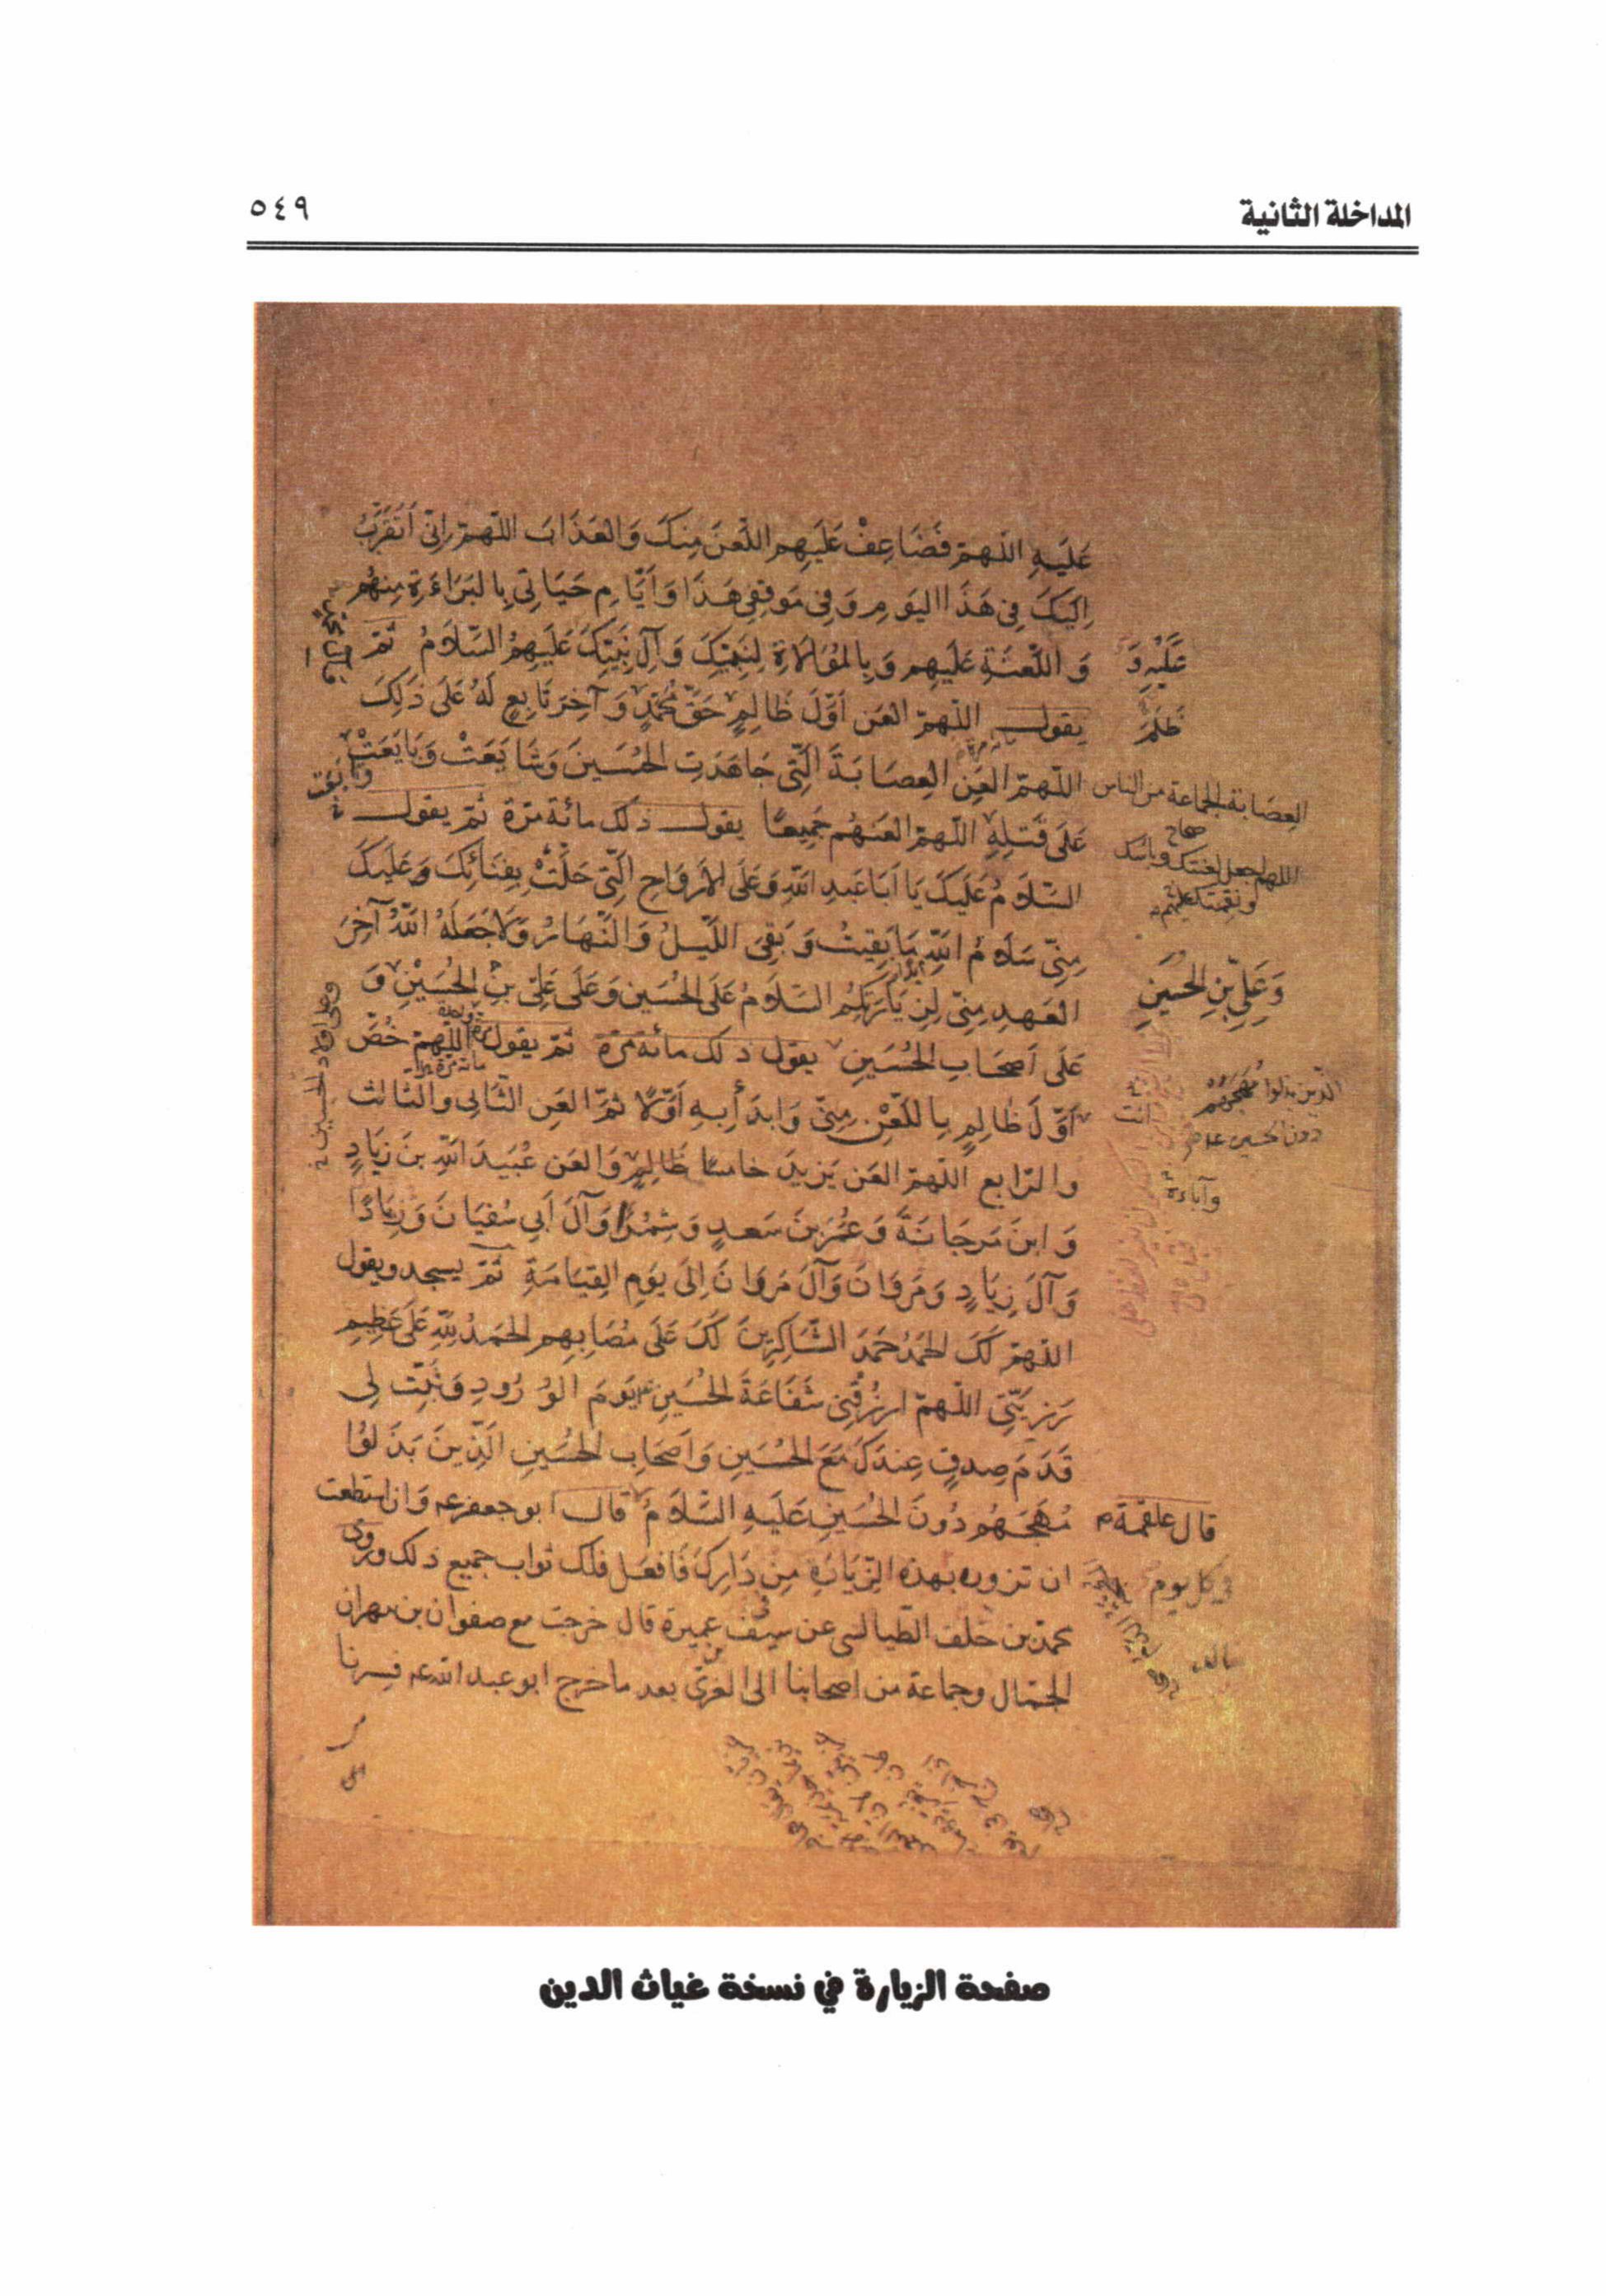 المداخلة الثانية
٥٤٩
عَلَيهِ اللّهمّ فَضَاعِفْ عَلَيهِم اللّعنَ مِنكَ وَالعَذَابَ اللّهمّ إِنّي أَتَقَرَّبُ
إِلَيكَ فِي هَذَا اليَومِ وَفِي مَوقِفِي هَذَا وَأَيَّامِ حَيَاتِي بِالبَرَاءَةِ مِنهُم
وَاللّعنَةِ عَلَيهِم وَبِالمُوَالَاةِ لِنَبِيّكَ وَآلِ نَبِيّكَ عَلَيهِمُ السّلَامُ ثمّ
عَلَيْهِ وَ
يقول اللّهمّ العَن أَوّلَ ظَالِمٍ حَقَّ مُحَمّدٍ وَآخِرَ تَابِعٍ لَهُ عَلَى ذَلِكَ
ظَلَمَ
اللّهمّ العَنِ العِصَابَةَ الَّتِي جَاهَدَتِ الحُسَينَ وَشَايَعَتْ وَبَايَعَتْ
وتابعت
العِصَابة الجماعة من الناس
صحاح
عَلَى قَتلِهِ اللّهمّ العَنهُم جَمِيعًا يقول ذلك مائة مرّة ثمّ يقول
اللهم اجعل لعنتك وبأسك
ونقمتك عليهم
السّلَامُ عَلَيكَ يَا أَبَا عَبدِ اللّهِ وَعَلَى الأَروَاحِ الَّتِي حَلَّتْ بِفِنَائِكَ وَعَلَيكَ
مِنّي سَلَامُ اللّهِ مَا بَقِيتُ وَبَقِيَ اللّيلُ وَالنّهَارُ وَلَا جَعَلَهُ اللّهُ آخِرَ
العَهدِ مِنّي لِزِيَارَتِكُم السّلَامُ عَلَى الحُسَينِ وَعَلَى عَلِيّ بنِ الحُسَيْنِ وَ
وَعَلِيِّ بنِ الحُسَينِ
عَلَى أَصحَابِ الحُسَينِ يقول ذلك مائة مرّة ثمّ يقول اللّهمّ خُصَّ
وعلى أولاد الحسين
أَوّلَ ظَالِمٍ بِاللّعْنِ مِنّي وَابدَأ بِهِ أَوّلًا ثمّ العَنِ الثّانِي والثالث
الّذين بذلوا مُهَجَهُمْ
دون الحسين
والرّابع اللّهمّ العَن يَزِيدَ خامسًا ظَالِمٍ وَالعَن عُبَيدَ اللّهِ بنَ زِيَادٍ
وآباءه
وَابنَ مَرجَانَةَ وَعُمَرَ بنَ سَعدٍ وَشِمْرًا وَآلَ أَبِي سُفيَانَ وَزِيَادًا
وَآلَ زِيَادٍ وَمَروَانَ وَآلَ مَروَانَ إِلَى يَومِ القِيَامَةِ ثمّ يسجد ويقول
اللّهمّ لَكَ الحَمدُ حَمدَ الشّاكِرِينَ لَكَ عَلَى مُصَابِهِم الحَمدُ لِلّهِ عَلَى عَظِيمِ
رَزِيّتِي اللّهمّ ارزُقنِي شَفَاعَةَ الحُسَينِ يَومَ الوُرُودِ وَثَبّت لِي
قَدَمَ صِدقٍ عِندَكَ مَعَ الحُسَينِ وَأَصحَابِ الحُسَينِ الَّذِينَ بَذَلُوا
مُهَجَهُم دُونَ الحُسَينِ عَلَيهِ السّلَامُ قال أبو جعفر ع وَان استطعت
قال علقمة
ان تزوره بهذه الزّيَارَةِ مِن دَارِكَ فَافعَل فلك ثواب جميع ذلك وروى
في كل يوم
محمّد بن خلف الطّيالسى عن سيف عميرة قال خرجت مع صفوان بن مهران
بن
الجمّال وجماعة من اصحابنا الى الغريّ بعد ما خرج ابو عبد الله ع فسرنا
صفحة الزيارة في نسخة غياث الدين